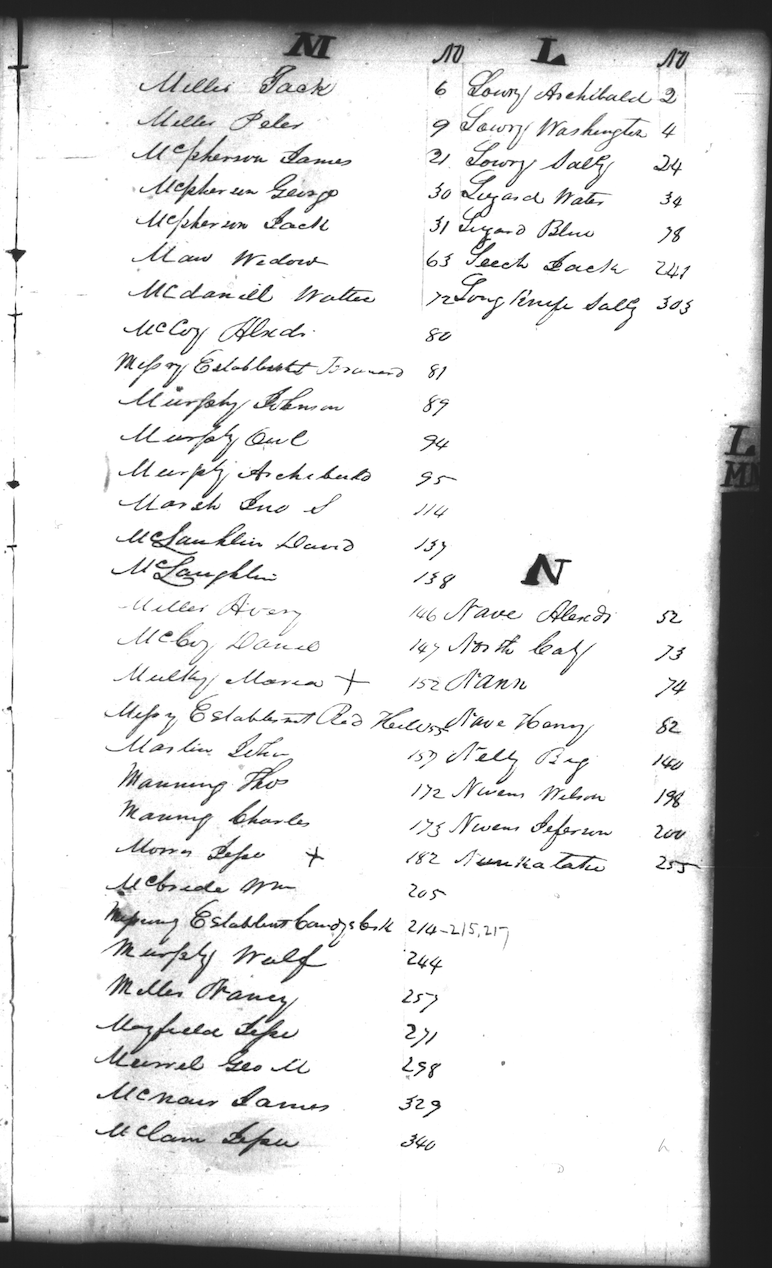 M No
Miller Jack 6
Miller Peter 9
McPherson James 21
McPherson George 30
McPherson Jack 31
Maw Widow 63
McDaniell Walter 72
McCoy Alexdr 80
Missry Establisht 81
Murphy Johnson 89
Murphy Owl 94
Murphy Archibald 95
Marsh Jno S 114
McLauhlin David 137
McLaughlin 138
Miller Avery 146
McCoy Daniel 147
Mulky Maria + 152
Missry Establishmt Red Hill 155
Martin John 157
Manning Thos 172
Manning Charles 173
Morris Jesse + 182
McBride Wm 205
Establisnt Candys Crk 214-215,217
Murphy Wolf 244
Miller Nancy 257
Mayfield Jesse 271
Murrel Geo M 298
McNair James 329
McLain Jesse 340
L No
Lowry Archibald 2
Lowry Washington 4
Lowry Salty 24
Lizard Water 34
Lizard Blue 78
Leech Jack 241
Long Knife Salty 303
L
MN
N
Nave Alexdr 52
North Caty 73
Nann 74
Nave Henry 82
Nelly Big 140
Nivens Wilson 198
Nivens Jeferson 200
255